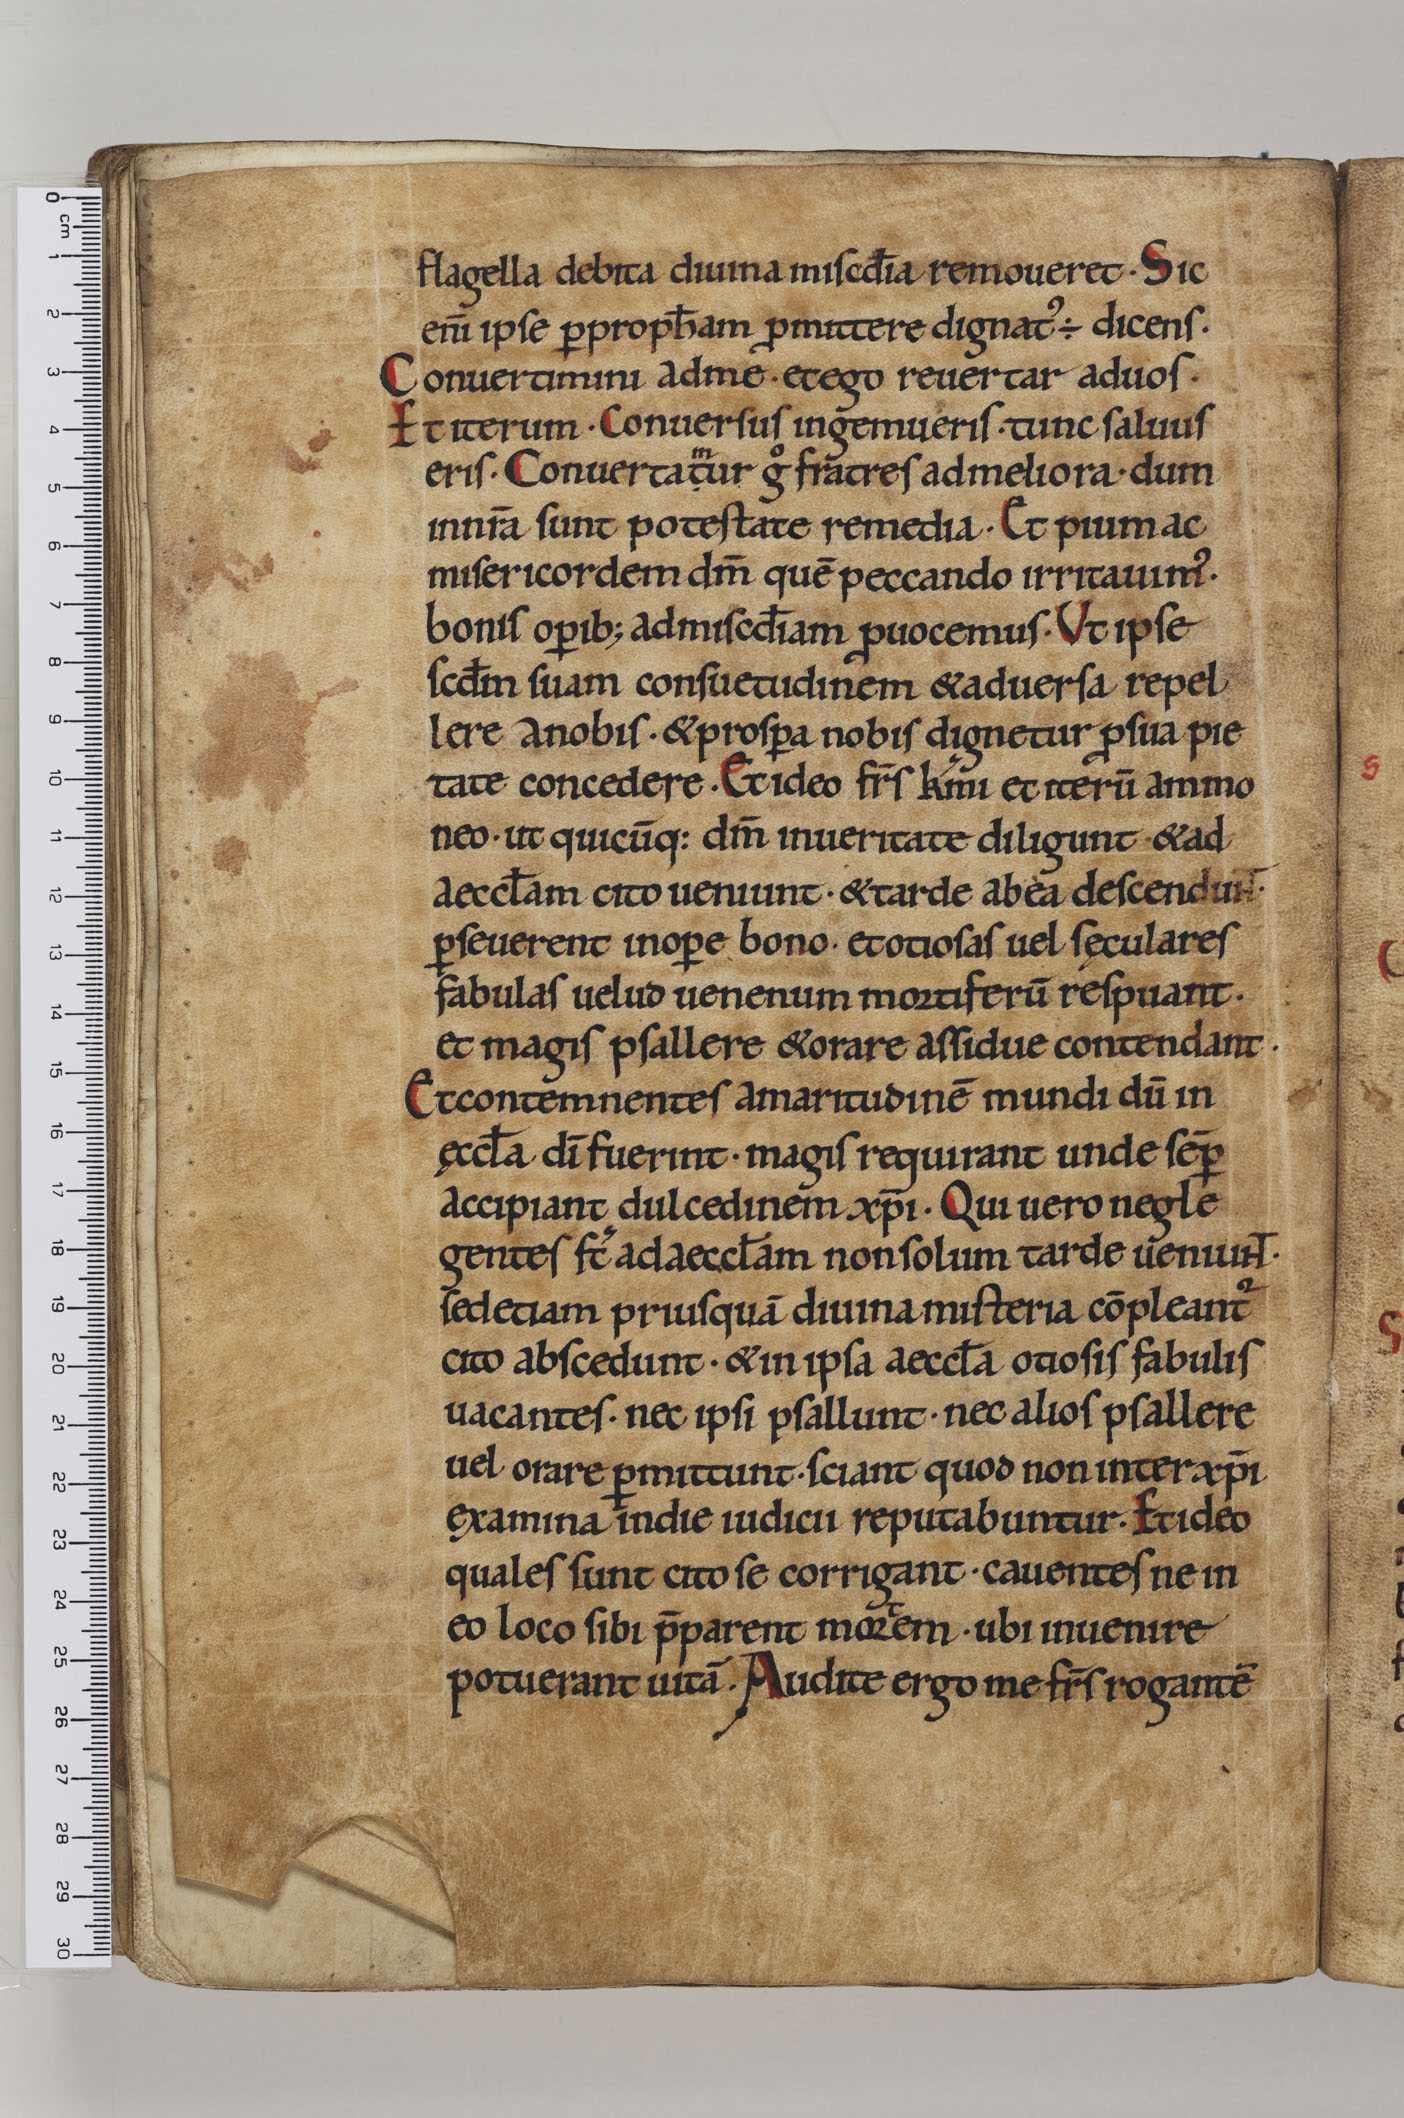 flagella debita diuina miscd̄ia remoueret · Sic
enī ipse ꝑproph̄am ꝓmittere dignatꝰ ÷ dicens ·
Conuertimini adme · etego reuertar aduos ·
Et iterum · Conuersus ingemueris · tunc saluus
eris · Conuertaṭᵐur gͦ fratres admeliora · dum
innr̄a sunt potestate remedia · Et pium ac
misericordem dm̄ quē peccando irritauimꝰ ·
bonis oꝑib; admiscd̄iam ꝓuocemus · Vt ipse
scd̄m suam consuetudinem &aduersa repel
lere anobis · &prosꝑa nobis dignetur ꝓsua pie
tate concedere · Et ideo fr̄s km̄i et iterū ammo
neo · ut quicūq: dm̄ inueritate diligunt · &ad
aeccl̄am cito ueniunt · &tarde abea descendunt ·
ꝑseuerent inoꝑe bono · etotiosas uel sęculares
fabulas uelud uenenum mortiferū respuant ·
et magis psallere &orare assidue contendant ·
Et contemnentes amaritudinē mundi dū in
ęccl̄a dī fuerint · magis requirant unde sēꝑ
accipiant dulcedinem xp̄i · Qui uero negle
gentes fc̄ adaeccl̄am nonsolum tarde ueniunt ·
sedetiam priusquā diuina misteria cōpleantᷣ
cito abscedunt · &in ipsa aeccl̄a otiosis fabulis
uacantes · nec ipsi psallunt · nec alios psallere
uel orare ꝑmittunt · sciant quod non inter xp̄i
examina indie iudicii reputabuntur · Et ideo
quales sunt cito se corrigant · cauentes ne in
eo loco sibi p̄parent morᵗem · ubi inuenire
potuerant uitā · Audite ergo me fr̄s rogantē
0 cm 1 2 3 4 5 6 7 8 9 10 11 12 13 14 15 16 17 18 19 20 21 22 23 24 25 26 27 28 29 30